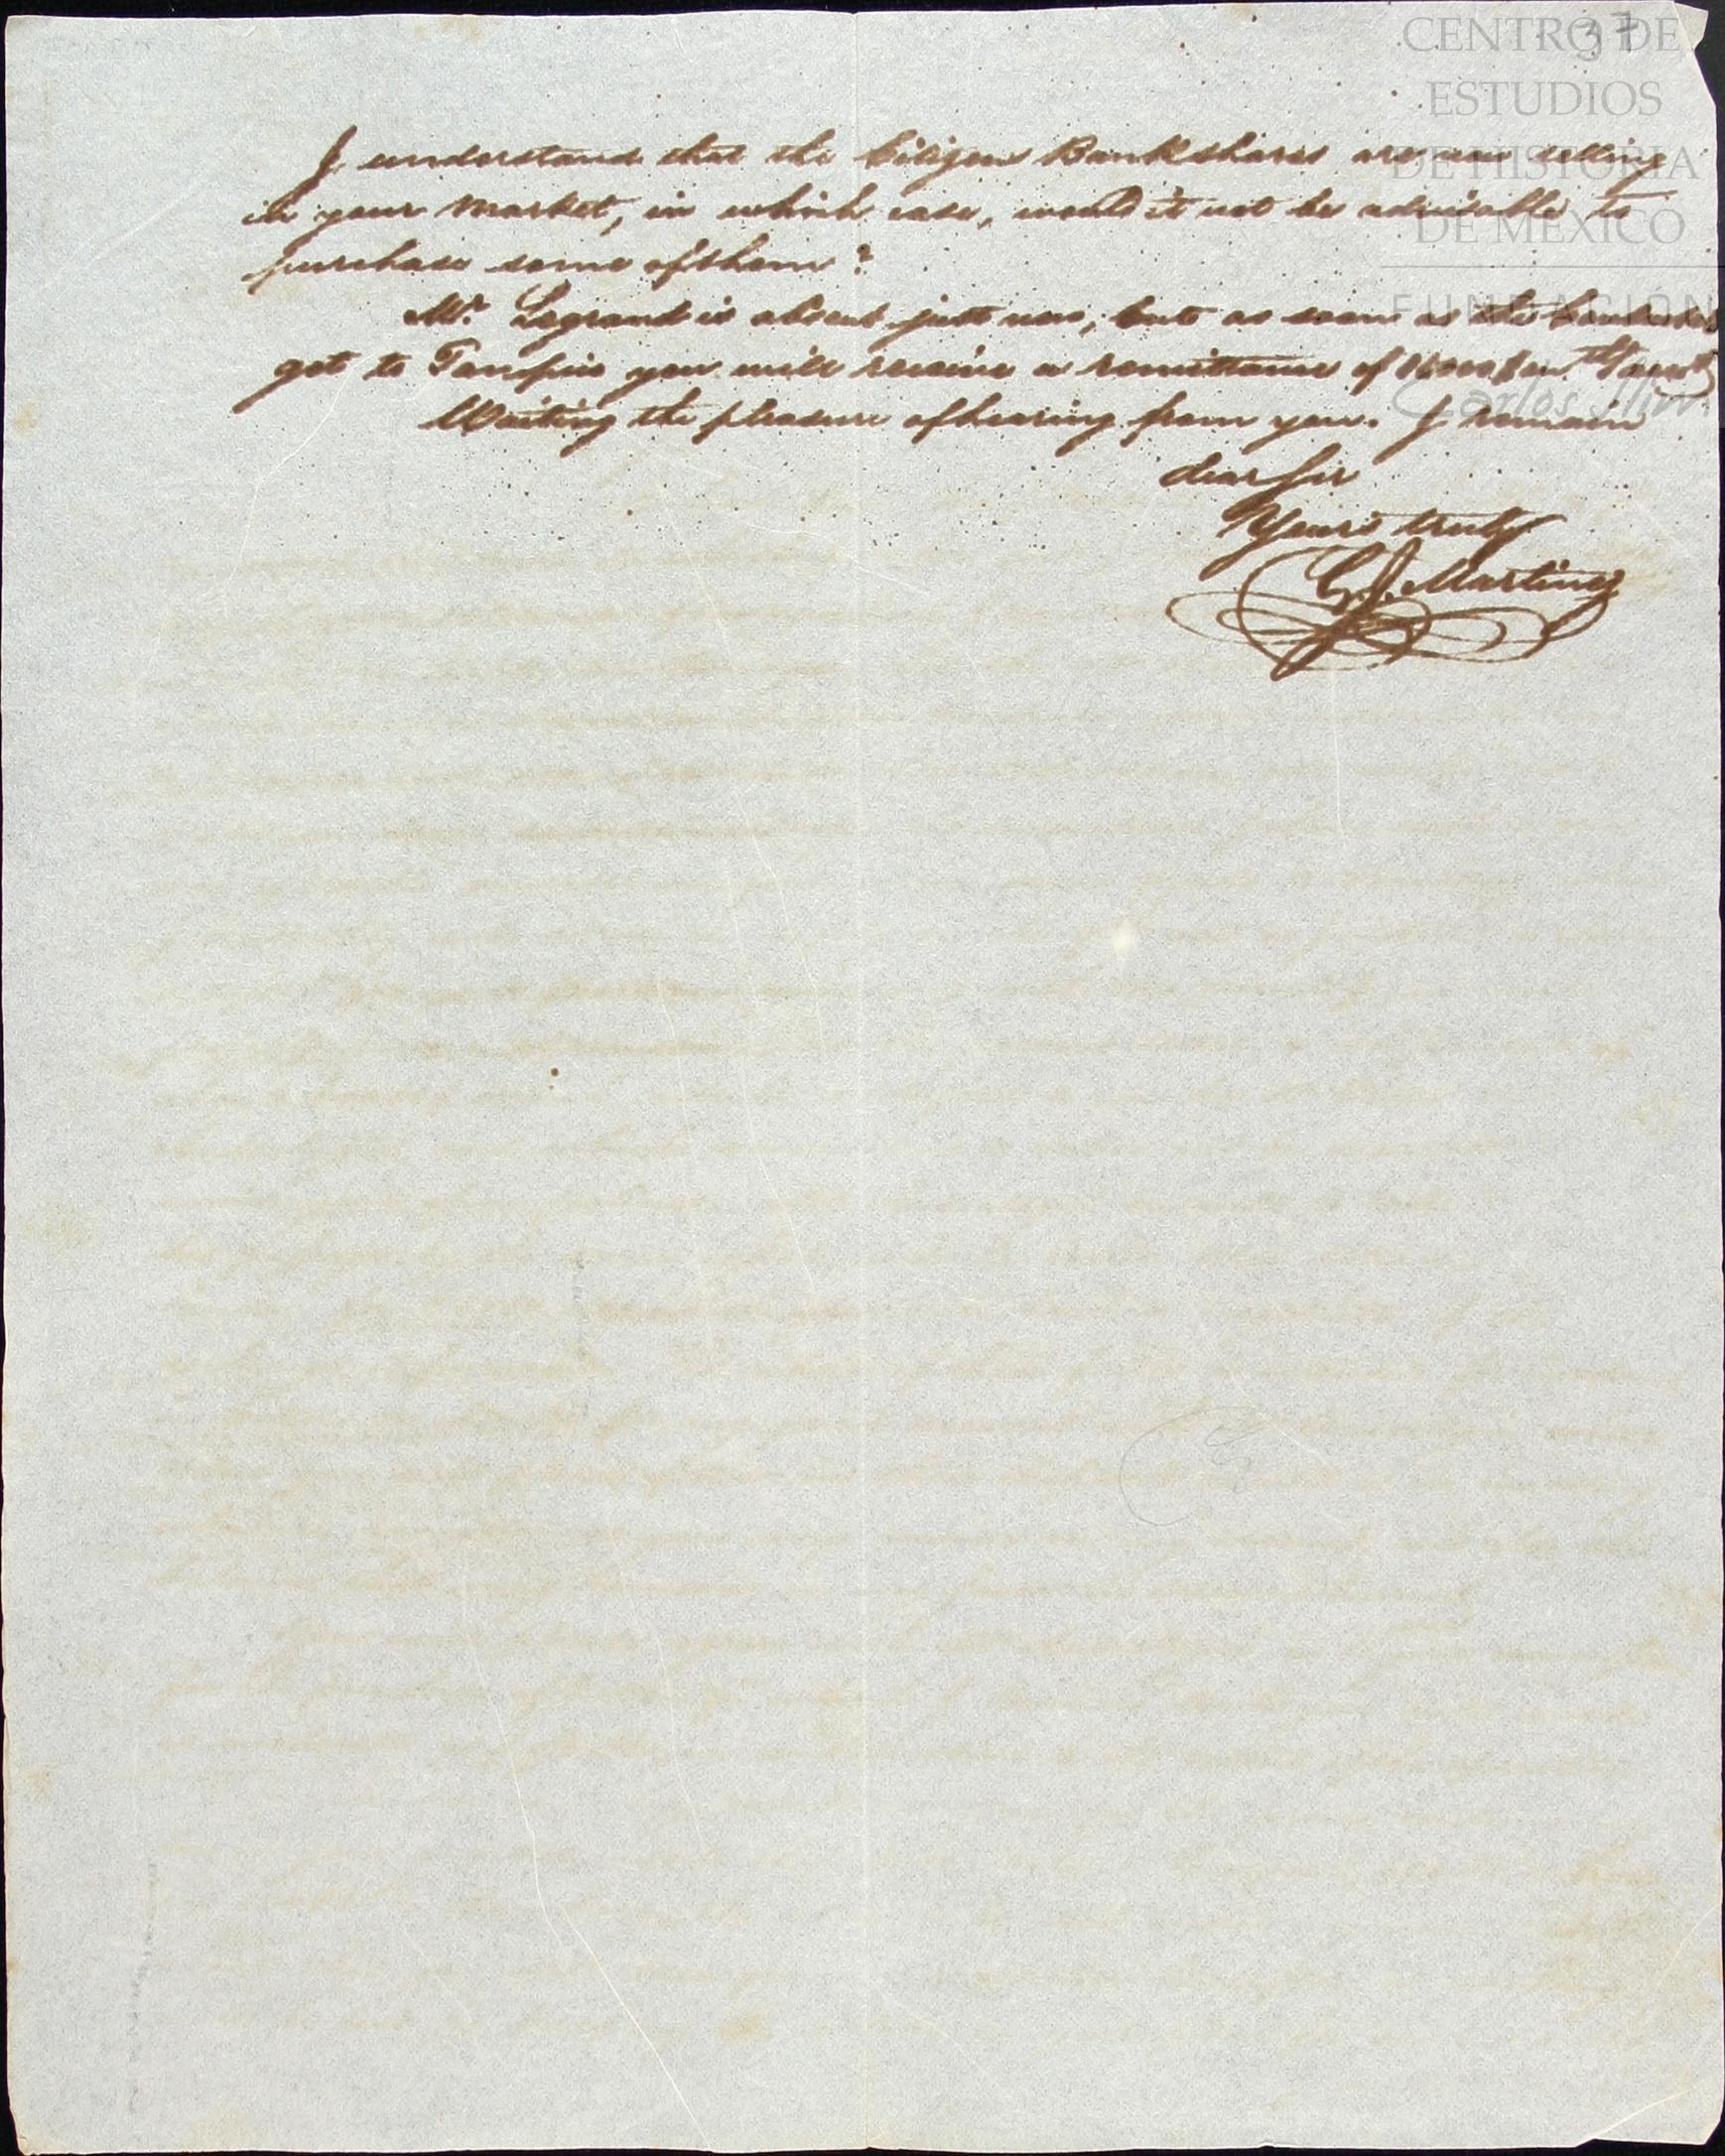 37
CENTRO DE
ESTUDIOS
DE HISTORIA
DE MEXICO
FUNDACIÓN
Carlos Slim
I understand that the Citizens Bank shares are now selling
in your market, in which case, would it not be advisable to
purchase some of them?
Mr. Legrand is absent just now, but as soon as the
get to Tampico you will receive a remittance of
Waiting the pleasure of hearing from you. I remain
dear Sir
Yours truly
Martinez